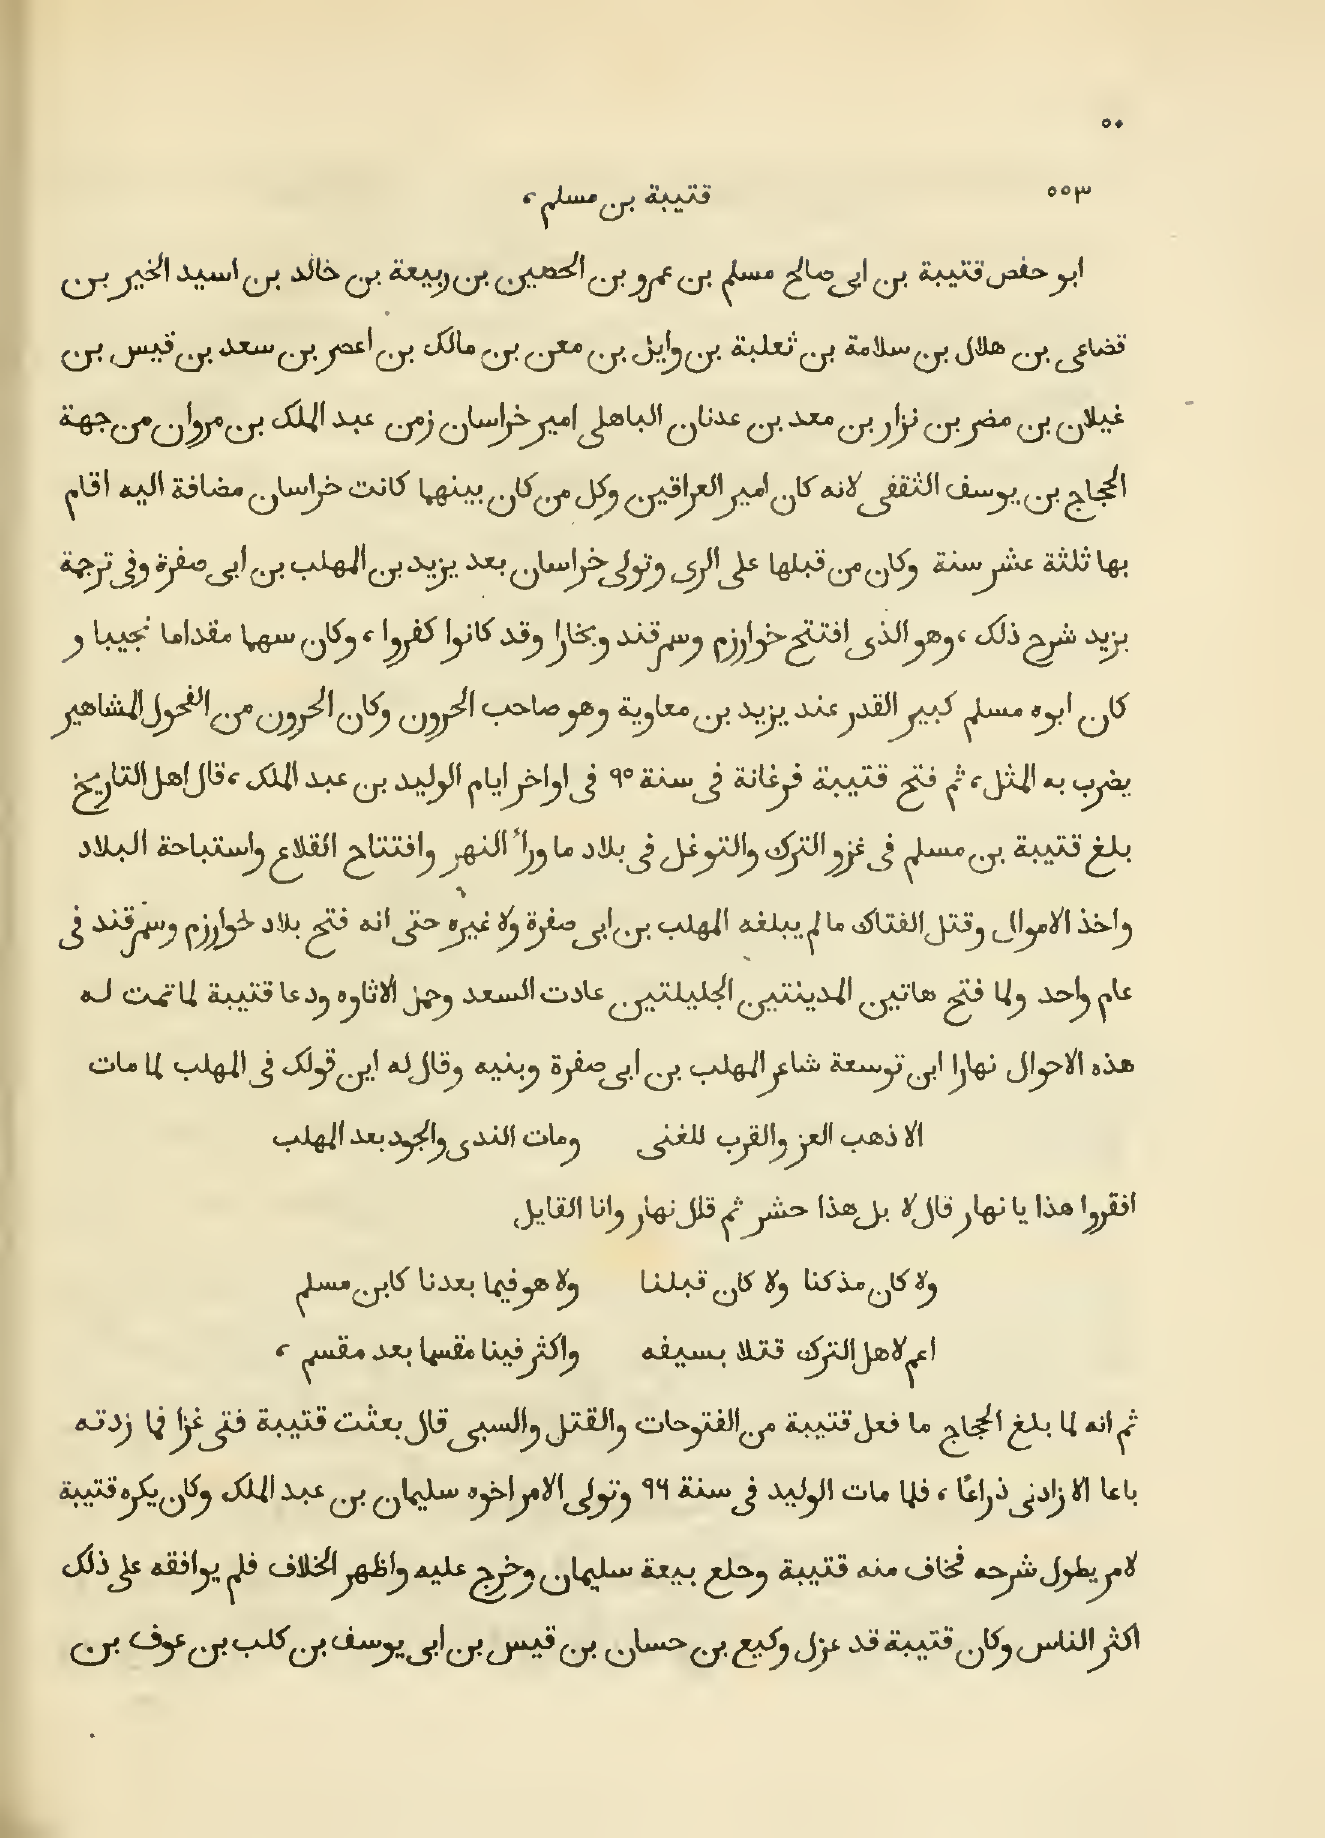 ٥٠
٥٥٣ قتيبة بن مسلم،
ابو حفص قتيبة بن ابى صالح مسلم بن عمرو بن الحصين بن ربيعة بن خالد بن اسيد الخير بن
قضاعى بن هلال بن سلامة بن ثعلبة بن وايل بن معن بن مالك بن اعصر بن سعد بن قيس بن
غيلان بن مضر بن نزار بن معد بن عدنان الباهلى امير خراسان زمن عبد الملك بن مروان من جهة
الحجاج بن يوسف الثقفى لانه كان امير العراقين وكل من كان بينهما كانت خراسان مضافة اليه اقام
بها ثلثة عشر سنة وكان من قبلها على الرى وتولى خراسان بعد يزيد بن المهلب بن ابى صفرة وفى ترجمة
يزيد شرح ذلك، وهو الذى افتتح خوارزم وسمرقند وبخارا وقد كانوا كفروا، وكان سهما مقداما نجيبا و
كان ابوه مسلم كبير القدر عند يزيد بن معاوية وهو صاحب الحرون وكان الحرون من الفحول المشاهير
يضرب به المثل، ثم فتح قتيبة فرغانة فى سنة ٩٥ فى اواخر ايام الوليد بن عبد الملك، قال اهل التاريخ
بلغ قتيبة بن مسلم فى غزو الترك والتوغل فى بلاد ما ورأ النهر وافتتاح القلاع واستباحة البلاد
واخذ الاموال وقتل الفتاك ما لم يبلغه المهلب بن ابى صفرة ولا غيره حتى انه فتح بلاد خوارزم وسمرقند فى
عام واحد ولما فتح هاتين المدينتين الجليلتين عادت السعد وحمل الاتاوه ودعا قتيبة لما تمت له
هذه الاحوال نهارا ابن توسعة شاعر المهلب بن ابى صفرة وبنيه وقال له اين قولك فى المهلب لما مات
الا ذهب العز والقرب للغنى ومات الندى والجود بعد المهلب
افقروا هذا يا نهار قال لا بل هذا حشر ثم قال نهار وانا القايل
ولا كان مذ كنا ولا كان قبلنا ولا هو فيما بعدنا كابن مسلم
اعم لاهل الترك قتلا بسيفه واكثر فينا مقسما بعد مقسم،
ثم انه لما بلغ الحجاج ما فعل قتيبة من الفتوحات والقتل والسبى قال بعثت قتيبة فتى غزا فما زدته
باعا الا زادنى ذراعًا، فلما مات الوليد فى سنة ٩٦ وتولى الامر اخوه سليمان بن عبد الملك وكان يكره قتيبة
لامر يطول شرحه فخاف منه قتيبة وحلع بيعة سليمان وخرج عليه واظهر الخلاف فلم يوافقه على ذلك
اكثر الناس وكان قتيبة قد عزل وكيع بن حسان بن قيس بن ابى يوسف بن كلب بن عوف بن